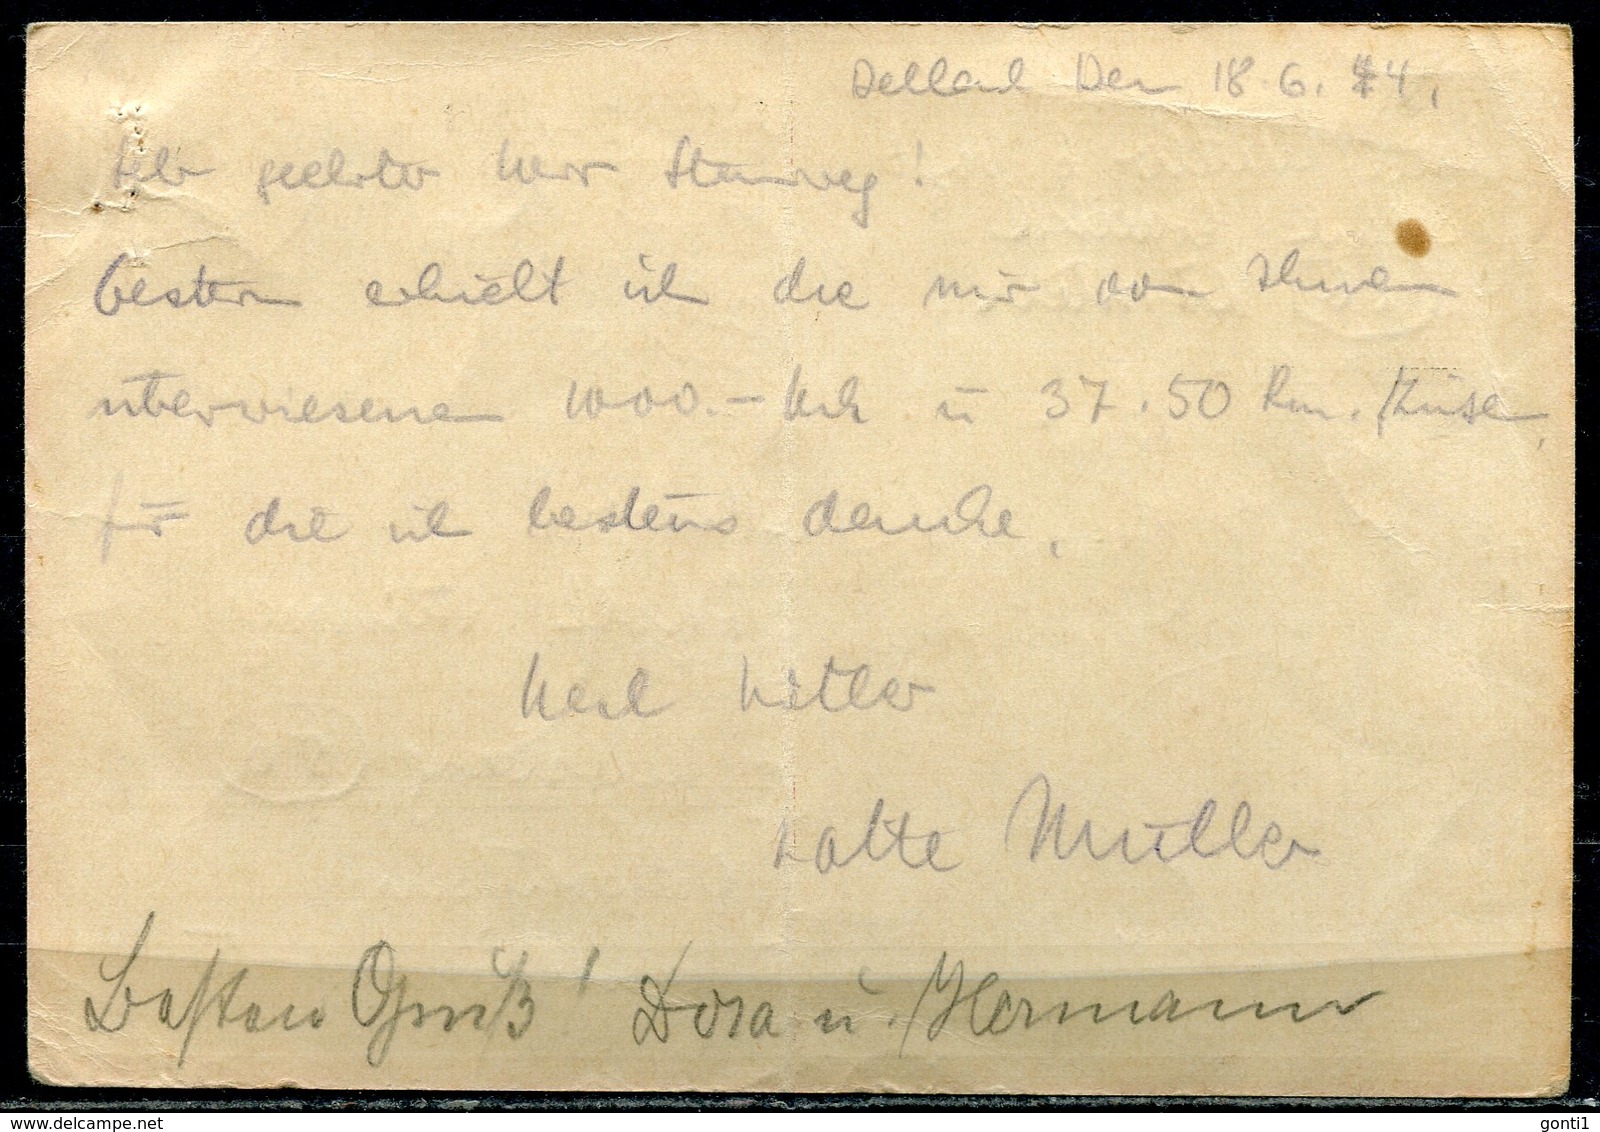 Dellach Den 18.6.44.
Sehr geehrter Herr Starweg!
Gestern erhielt ich die mir von Ihnen
überwiesenen 1000.- Mk u 37.50 Rm. Zinsen,
für die ich bestens danke.
Heil Hitler
Müller
Besten Gruß! Dora u. Hermann
delcampe.net
gonti1